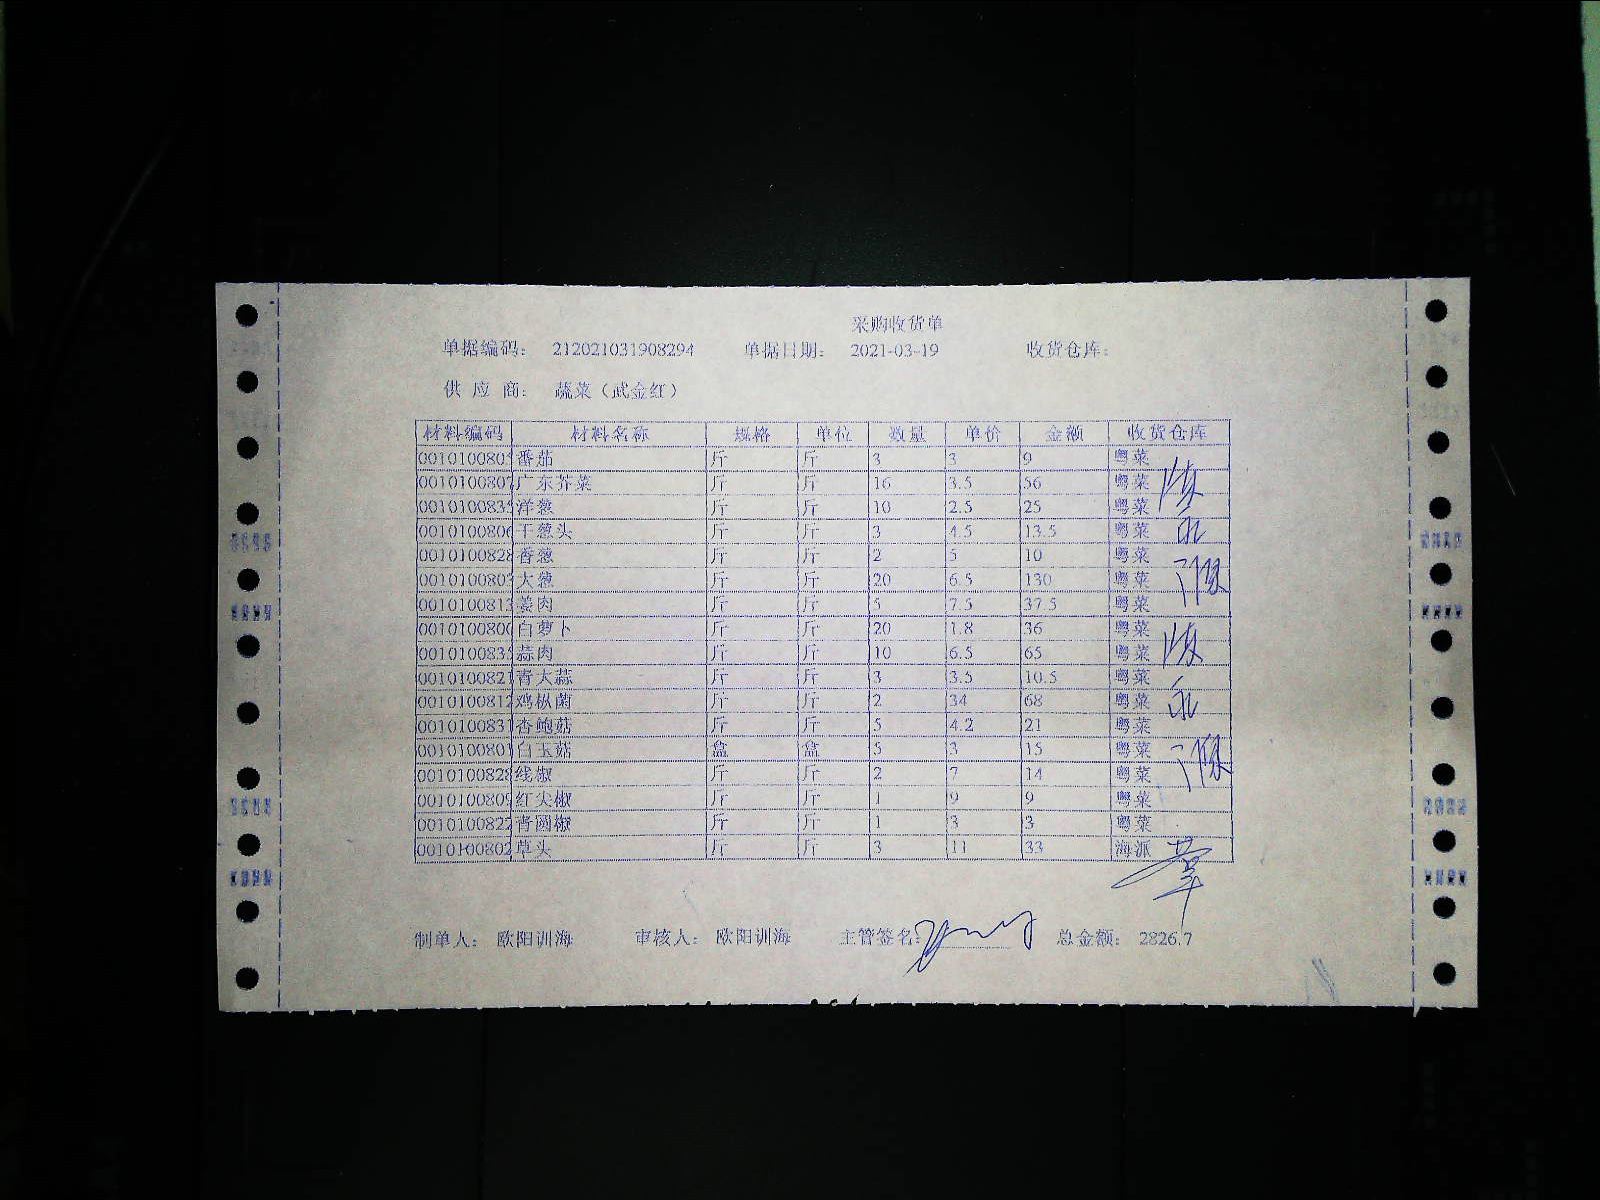 采购收货单
单据编码： 212021031908294 单据日期： 2021-03-19 收货仓库：
供 应 商： 蔬菜（武金红）
材料编码 材料名称 规格 单位 数量 单价 金额 收货仓库
0010100805 番茄 斤 斤 3 3 9 粤菜
0010100807 广东芥菜 斤 斤 16 3.5 56 粤菜
0010100835 洋葱 斤 斤 10 2.5 25 粤菜
0010100806 干葱头 斤 斤 3 4.5 13.5 粤菜
0010100828 香葱 斤 斤 2 5 10 粤菜
0010100803 大葱 斤 斤 20 6.5 130 粤菜
0010100813 姜肉 斤 斤 5 7.5 37.5 粤菜
0010100800 白萝卜 斤 斤 20 1.8 36 粤菜
0010100835 蒜肉 斤 斤 10 6.5 65 粤菜
0010100821 青大蒜 斤 斤 3 3.5 10.5 粤菜
0010100812 鸡枞菌 斤 斤 2 34 68 粤菜
0010100831 杏鲍菇 斤 斤 5 4.2 21 粤菜
0010100801 白玉菇 盒 盒 5 3 15 粤菜
0010100828 线椒 斤 斤 2 7 14 粤菜
0010100809 红尖椒 斤 斤 1 9 9 粤菜
0010100822 青圆椒 斤 斤 1 3 3 粤菜
0010100802 草头 斤 斤 3 11 33 海派
制单人： 欧阳训海 审核人： 欧阳训海 主管签名： 总金额： 2826.7